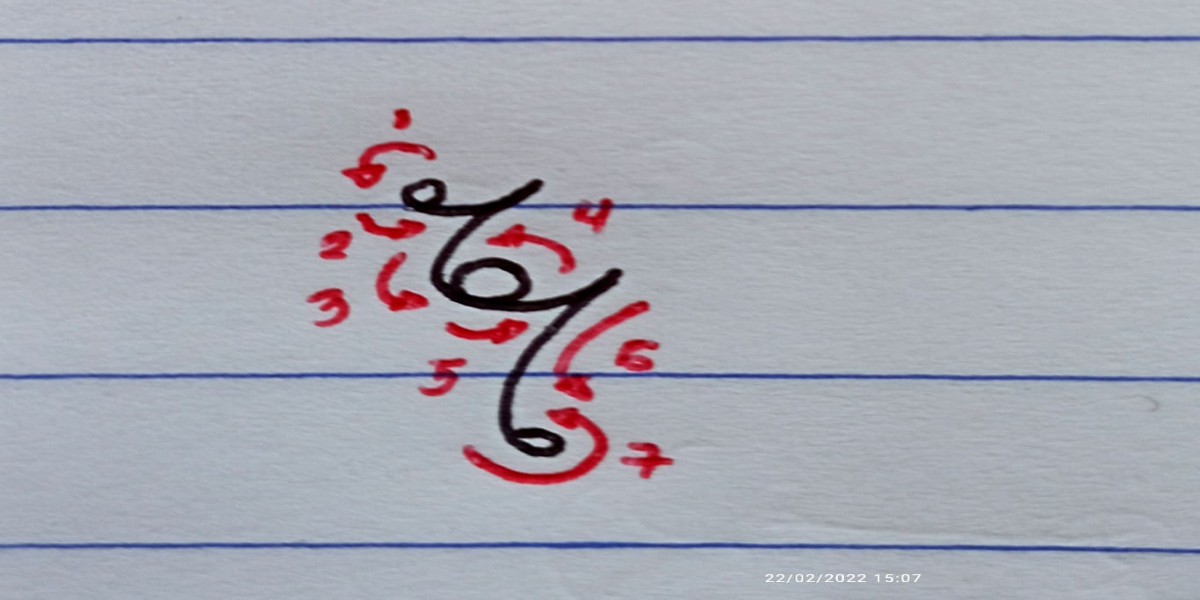 1
2 4
3
5 6
7
22/02/2022 15:07